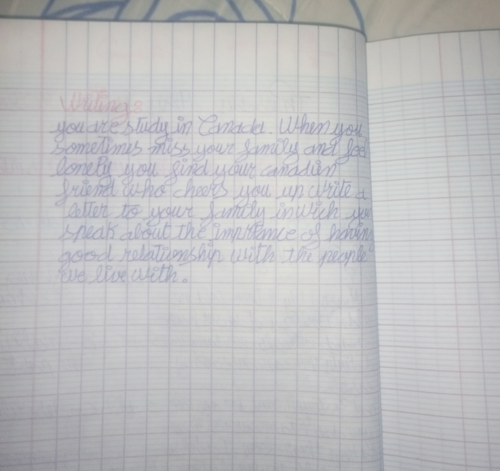 Writing:
you are study in Canada. When you
sometimes miss your family and feel
lonely you find your canadian
friend who cheers you up write a
letter to your family in wich you
speak about the importance of having
good relationship with the people
we live with.